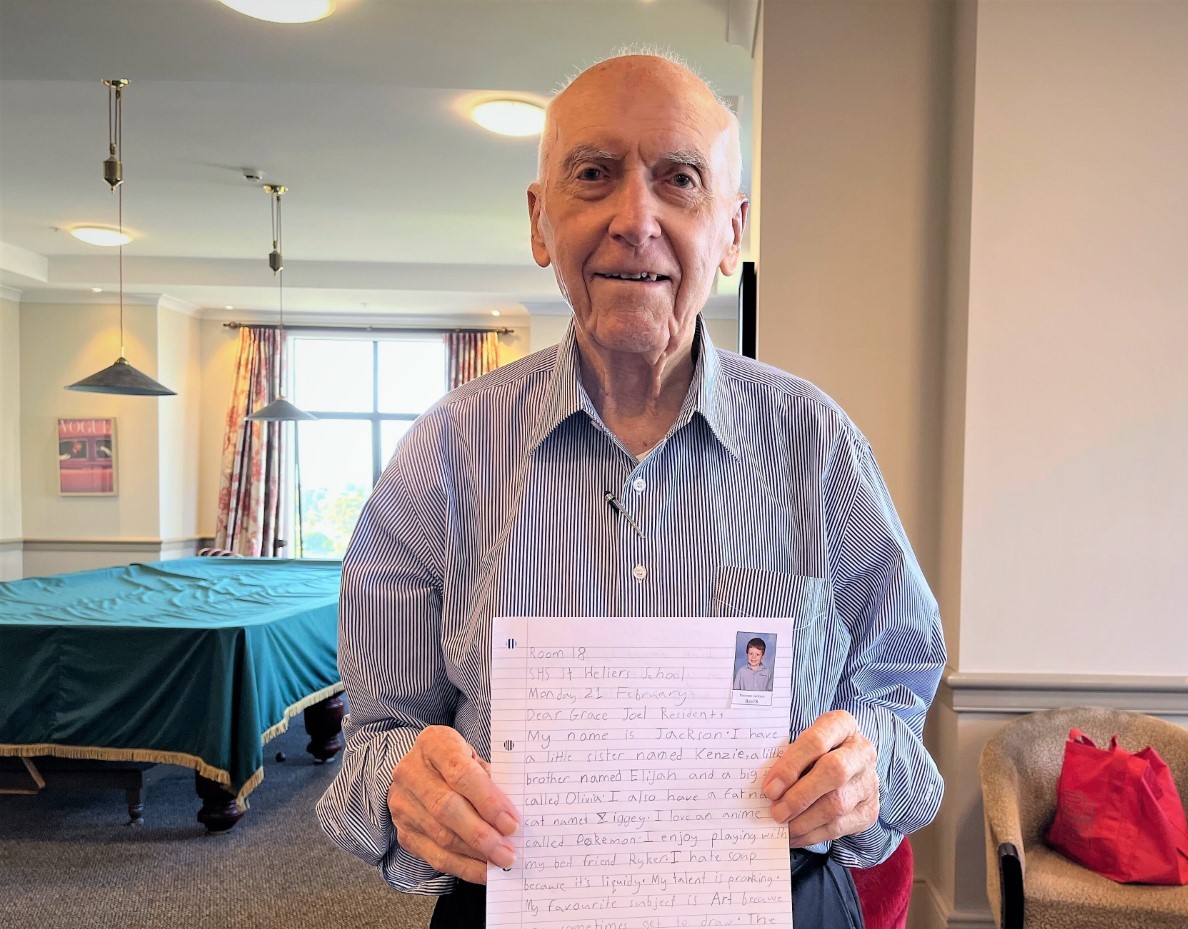 VOGUE
Room 18
SHS St Heliers School
Monday, 21 February
Dear Grace Joel Resident,
My name is Jackson. I have
a little sister named Kenzie, a little
brother named Elijah and a big
called Olivia. I also have a fat
cat named Ziggey. I love an anime
called Pokemon. I enjoy playing with
my best friend Ryker. I hate soap
because it's liquidy. My talent is pranking.
My favourite subject is Art because
sometimes get to draw. The